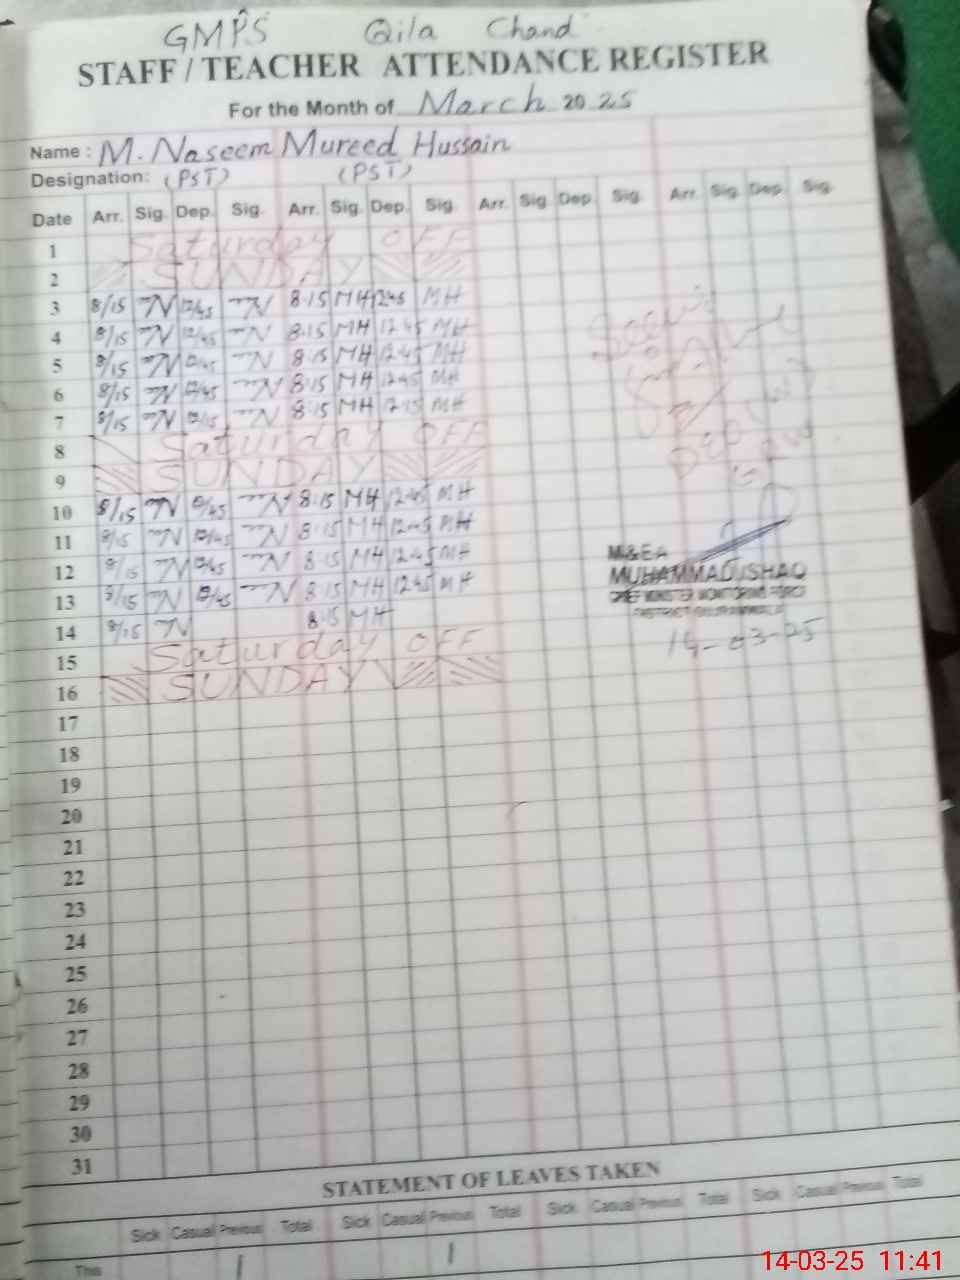 GMPS Qila Chand
STAFF / TEACHER ATTENDANCE REGISTER
For the Month of March 2025
Name : M. Naseem Mureed Hussain
Designation: (PST) (PST)
Date Arr. Sig. Dep. Sig. Arr. Sig. Dep. Sig. Arr. Sig. Dep. Sig. Arr. Sig. Dep. Sig.
1 Saturday OFF
2 SUNDAY
3 8/15 N 12/45 N 8.15 MH 12.45 MH
4 8/15 N 12/45 N 8.15 MH 12.45 MH
5 8/15 N 12/45 N 8.15 MH 12.45 MH
6 8/15 N 12/45 N 8.15 MH 12.45 MH
7 8/15 N 12/15 N 8.15 MH 12.15 MH
8 Saturday OFF
9 SUNDAY
10 8/15 N 12/45 N 8.15 MH 12.45 MH
11 8/15 N 12/45 N 8.15 MH 12.45 MH
12 8/15 N 12/45 N 8.15 MH 12.45 MH
13 8/15 N 12/45 N 8.15 MH 12.45 MH
14 8/15 N 8.15 MH
15 Saturday OFF
16 SUNDAY
M&EA
MUHAMMAD ISHAQ
CHIEF MINISTER MONITORING FORCE
14-03-25
17
18
19
20
21
22
23
24
25
26
27
28
29
30
31
STATEMENT OF LEAVES TAKEN
Sick Casual Previous Total Sick Casual Previous Total Sick Casual Previous Total Sick Casual Previous Total
This 1 1
14-03-25 11:41